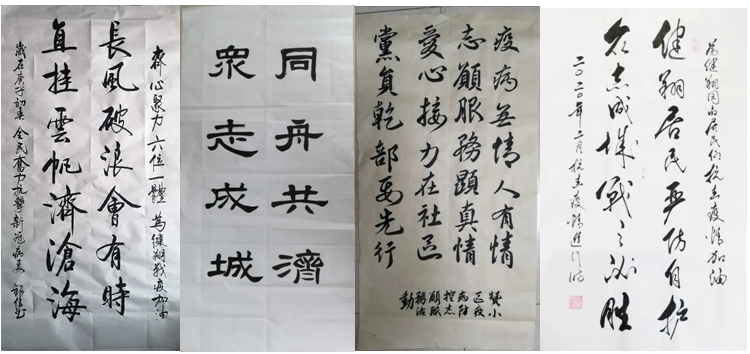 齊心聚力 六位一體 為健翔戰疫加油
長風破浪會有時
直挂雲帆濟滄海
歲在庚子初春 全民奮力抗擊新冠病毒
同舟共濟
衆志成城
疫病無情人有情
志願服務顯真情
愛心接力在社區
黨員乾部要先行
贊小
區疫
病防
控志
願服
務活
動
為健翔園的居民们抗击疫情加油
健翔居民严防自护
众志成城战之必胜
二〇二〇年二月抗击疫情进行